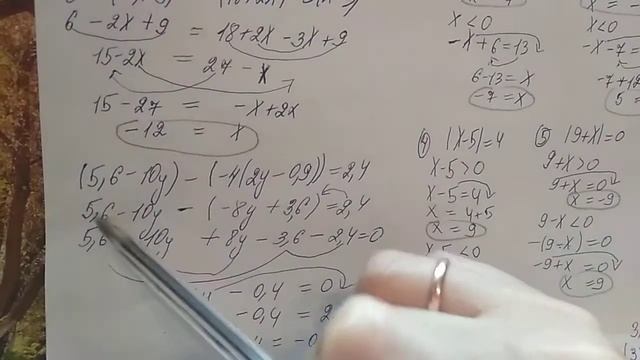 6 - 2x + 9 = 18 + 2x - 3x + 9
15 - 2x = 27 - x
15 - 27 = -x + 2x
-12 = x
(5,6 - 10y) - (-4(2y - 0,9)) = 2,4
5,6 - 10y - (-8y + 3,6) = 2,4
5,6 - 10y + 8y - 3,6 - 2,4 = 0
- 0,4 = 0
- 0,4 = 2
= -0
x < 0
-x + 6 = 13
6 - 13 = x
7 = x
4) |x - 5| = 4
x - 5 > 0
x - 5 = 4
x = 4 + 5
x = 9
x - 5 < 0
x < 0
-x - 7 =
-7 + 12
5 =
5) |9 + x| = 0
9 + x > 0
9 + x = 0
x = -9
9 - x < 0
-(9 - x) = 0
-9 + x = 0
x = 9